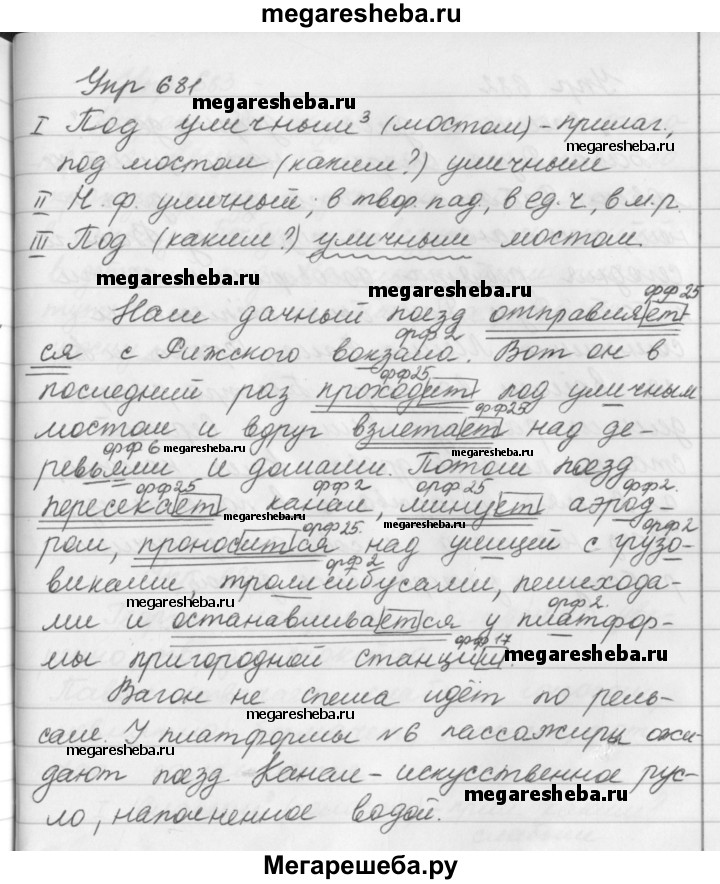 megaresheba.ru
Упр 681
megaresheba.ru
I Под уличным³ (мостом) - прилаг.,
megaresheba.ru
под мостом (каким?) уличным
II Н. ф. уличный; в твор. пад., в ед. ч., в м. р.
III Под (каким?) уличным мостом.
megaresheba.ru
megaresheba.ru
орф 25
Наш дачный поезд отправляет-
орф 2
ся с Рижского вокзала. Вот он в
орф 25
последний раз проходит под уличным
орф 25
мостом и вдруг взлетает над де-
орф 6 megaresheba.ru megaresheba.ru
ревьями и домами. Потом поезд
орф 25 орф 2 орф 25 орф 2.
пересекает канал, минует аэрод-
megaresheba.ru megaresheba.ru
орф 25. орф 2
ром, проносится над улицей с грузо-
орф 2
виками, троллейбусами, пешехода-
megaresheba.ru megaresheba.ru
орф 2.
ми и останавливается у платфор-
орф 17
мы пригородной станции.
megaresheba.ru
Вагон не спеша идёт по рель-
megaresheba.ru
сам. У платформы №6 пассажиры ожи-
megaresheba.ru
дают поезд. Канал - искусственное рус-
megaresheba.ru
ло, наполненное водой.
Мегарешеба.ру